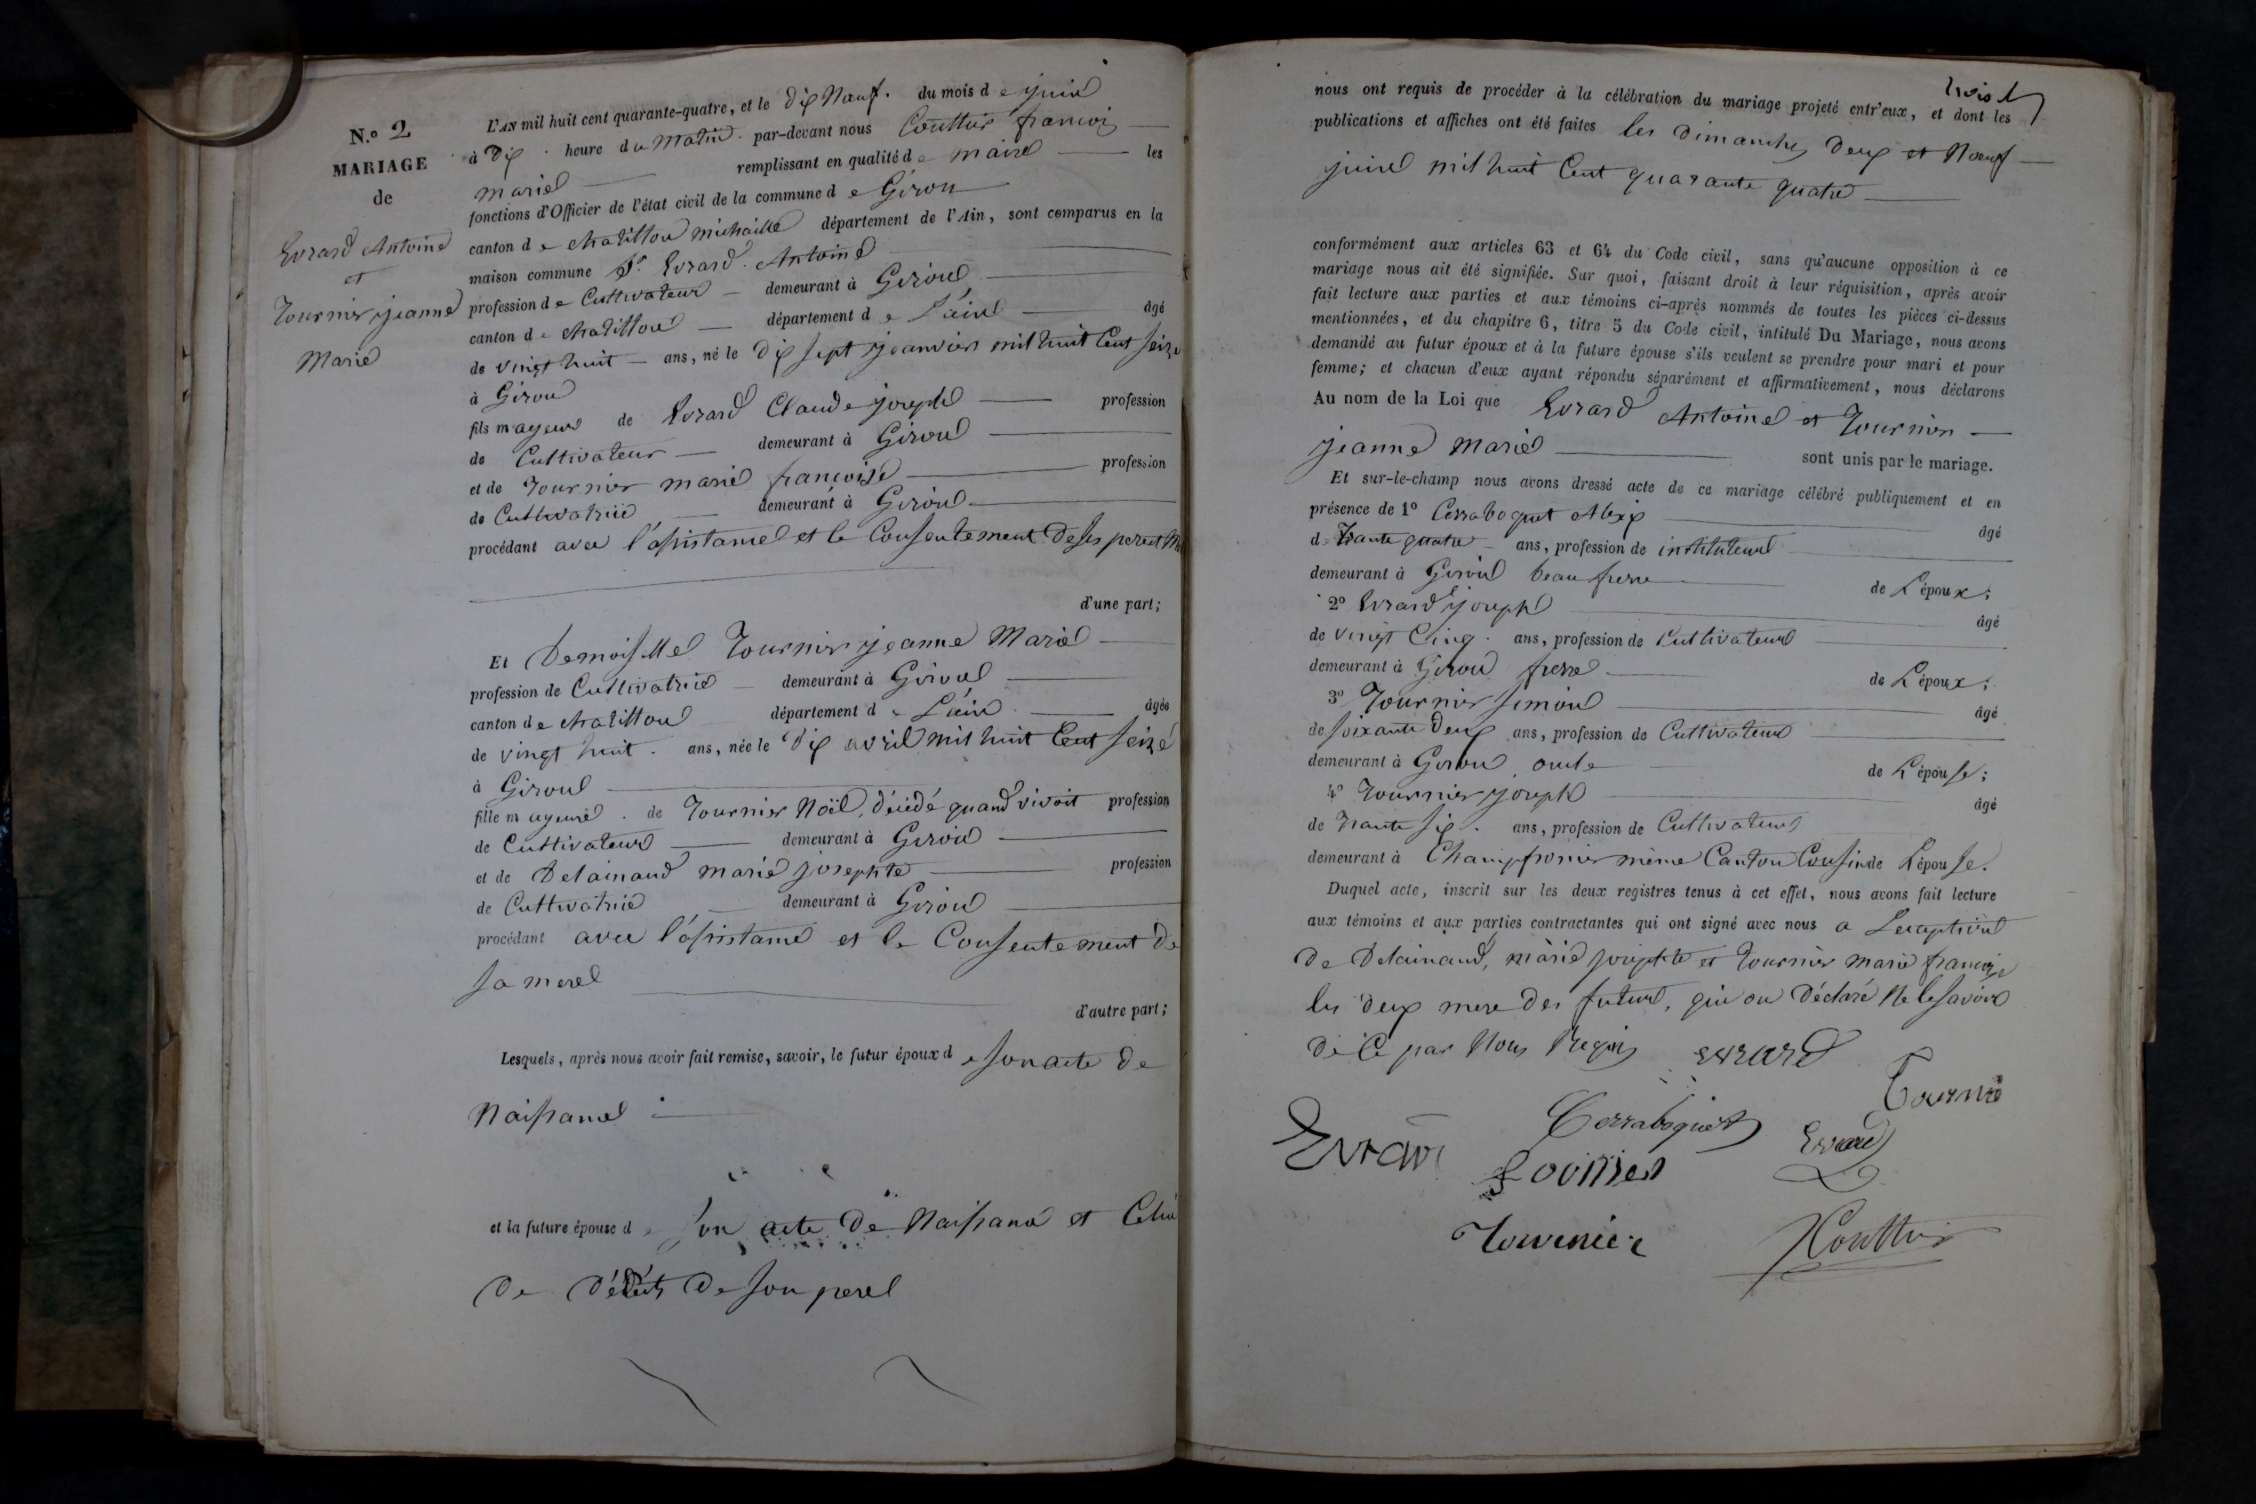 N.o 2
MARIAGE
de
Evrard Antoine
et
Tournier jeanne
Marie
L'AN mil huit cent quarante-quatre, et le dix Neuf. du mois de juin
à dix heure du Matin par-devant nous Couttier françois
maire remplissant en qualité de maire les
fonctions d'Officier de l'état civil de la commune de Giron
canton de chatillon michaille département de l'Ain, sont comparus en la
maison commune Sr. Evrard Antoine
profession de Cultivateur demeurant à Giron
canton de chatillon département de L'ain âgé
de vingt huit ans, né le dix sept jeanvier mil huit Cent seize
à Giron
fils mayeur de Evrard Claude joseph profession
de Cultivateur demeurant à Giron
et de Tournier marie françoise profession
de Cultivatrice demeurant à Giron
procédant avec l'assistance et le Consentement de ses pere et
d'une part;
Et Demoiselle Tournier jeanne Marie
profession de Cultivatrice demeurant à Giron
canton de chatillon département de L'ain âgée
de vingt huit ans, née le dix avril mil huit Cent seize
à Giron
fille mayeure de Tournier Noël, décédé quand vivoit profession
de Cultivateur demeurant à Giron
et de Delainaud marie josephte profession
de Cultivatrice demeurant à Giron
procédant avec l'assistance et le Consentement de
sa mere
d'autre part;
Lesquels, après nous avoir fait remise, savoir, le futur époux de son acte de
Naissance
et la future épouse de son acte de Naissance et Celui
de décès de son pere
trois
nous ont requis de procéder à la célébration du mariage projeté entr'eux, et dont les
publications et affiches ont été faites les dimanches deux et Neuf
juin mil huit Cent quarante quatre
conformément aux articles 63 et 64 du Code civil, sans qu'aucune opposition à ce
mariage nous ait été signifiée. Sur quoi, faisant droit à leur réquisition, après avoir
fait lecture aux parties et aux témoins ci-après nommés de toutes les pièces ci-dessus
mentionnées, et du chapitre 6, titre 5 du Code civil, intitulé Du Mariage, nous avons
demandé au futur époux et à la future épouse s'ils veulent se prendre pour mari et pour
femme; et chacun d'eux ayant répondu séparément et affirmativement, nous déclarons
Au nom de la Loi que Evrard Antoine et Tournier
jeanne Marie sont unis par le mariage.
Et sur-le-champ nous avons dressé acte de ce mariage célébré publiquement et en
présence de 1o Cerraboquet Alexix âgé
de Trante quatre ans, profession de instituteur
demeurant à Giron beau frere de L'époux;
2o Evrard joseph âgé
de vingt Cinq ans, profession de Cultivateur
demeurant à Giron frere de L'époux;
3o Tournier Simon âgé
de soixante deux ans, profession de Cultivateur
demeurant à Giron oncle de L'épouse;
4o Tournier joseph âgé
de trante six ans, profession de Cultivateur
demeurant à Champfromier même Canton Cousin de L'épouse.
Duquel acte, inscrit sur les deux registres tenus à cet effet, nous avons fait lecture
aux témoins et aux parties contractantes qui ont signé avec nous a Lexception
de Delainaud, marie josephte et Tournier marie françoise
les deux mere des futurs, qui on déclaré Ne le savoir
de Ce par Nous Requis evrard
Tournie
Cerraboquet
Evrard
Evrar
Tournier
Couttier